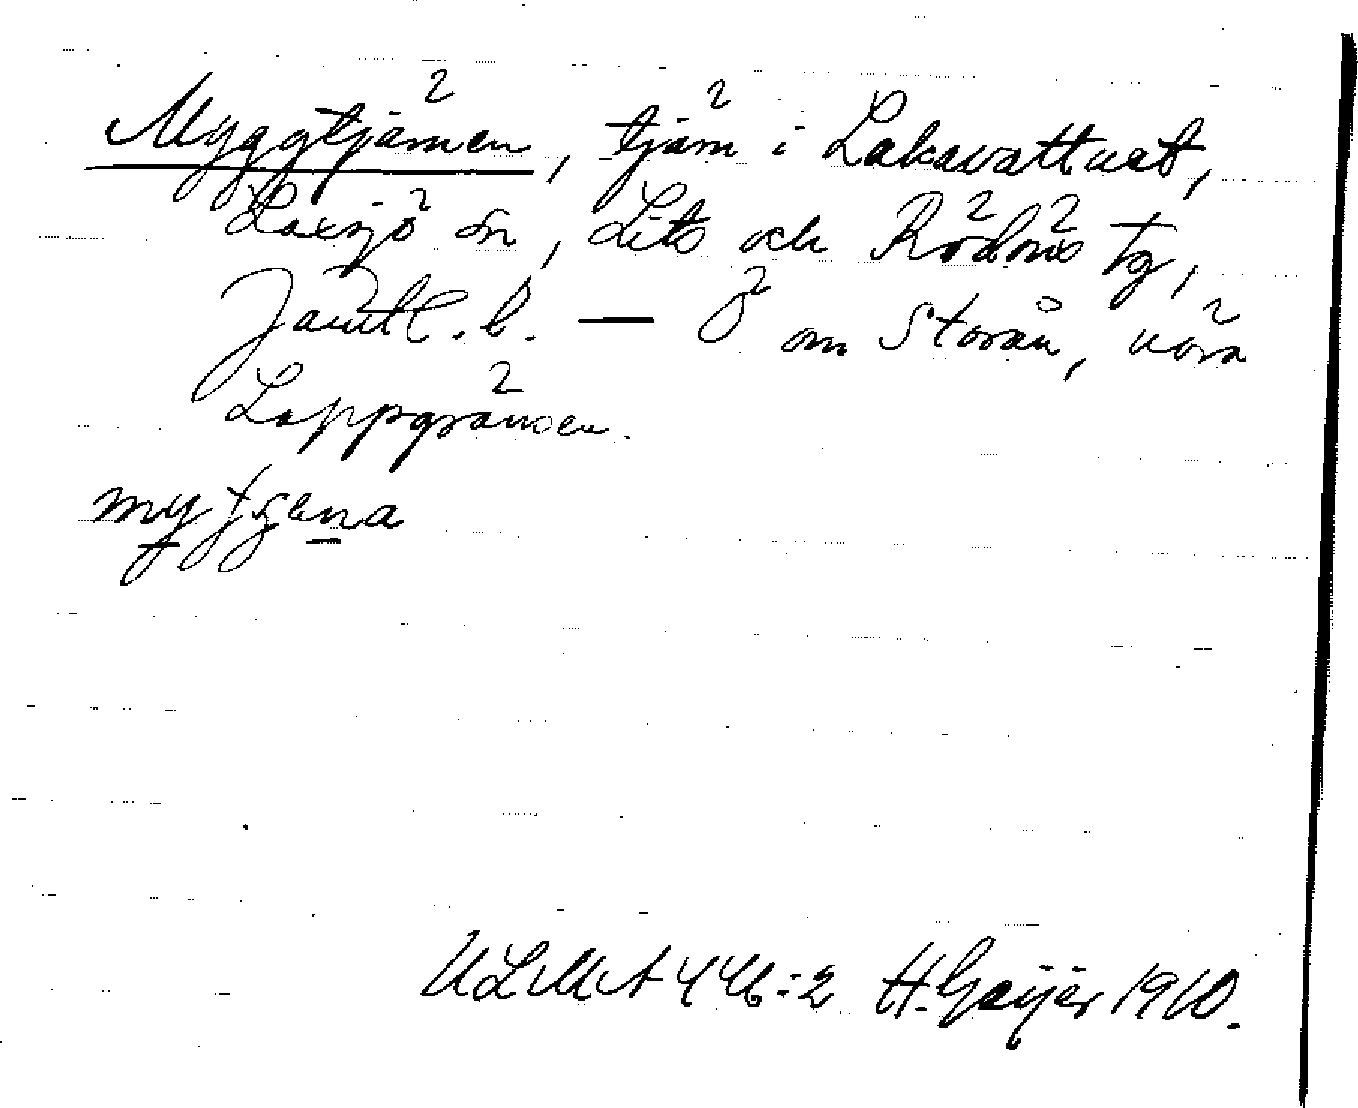 Myggtjärnen, tjärn i Lakavattnet,
Laxsjö sn, Lits och Rödöns tg,
Jämtl. l. — Ö om Storån, nära
Lappgränsen.
ULMA 446:2 H. Geijer 1910.